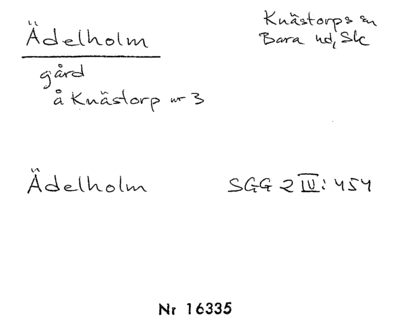 Ädelholm
Knästorps sn
Bara hd, Sk
gård
å Knästorp nr 3
Ädelholm
SGG 2 IV: 454
Nr 16335